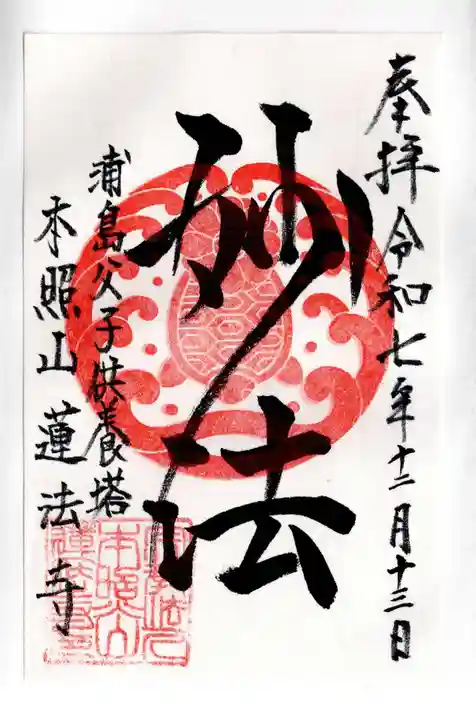 奉拝 令和七年十二月十三日
妙法
浦島父子供養塔
本照山蓮法寺